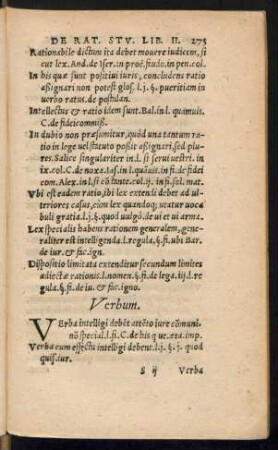 DE RAT. STV. LIB. II. 275
Rationabile dictum ita debet mouere iudicem, si
cut lex. And. de Iser. in proœ̃. feudo. in pen. col.
In his quæ sunt positiui iuris, concludens ratio
assignari non potest glos. l.j. §. pueritiam in
uerbo ratus. de postulan.
Intellectus & ratio idem sunt. Bal. in l. quamuis.
C. de fideicommiss.
In dubio non præsumitur, quòd una tantum ra-
tio in lege uel statuto possit assignari, sed plu
res. Salice singulariter in .l. si serui uestri. in
ix. col. C. de noxa. Ias. in l. quæsiti. in fi. de fidei
com. Alex. in l. si cõstante. col. ij. in fi. sol. mat.
Vbi est eadem ratio, ibi lex extendi debet ad ul-
teriores casus, cùm lex quandoq; utatur uoca
buli gratia. l.j. §. quod uulgò. de ui et ui arma.
Lex specialis habens rationem generalem, gene-
raliter est intelligenda. l. regula. §. fi. ubi Bar.
de iur. & fac. ign.
Dispositio limitata extenditur secundum limites
adiectæ rationis. l. nomen. §. fi. de lega. iij. l. re
gula. §. fi. de iu. & fac. igno.
Verbum.
VErba intelligi debẽt attẽto iure cõmuni.
nõ special. l. fi. C. de his quę. ęta. imp.
Verba cum effectu intelligi debent. l.j. §. j. quod
quis. iur.
S ij Verba